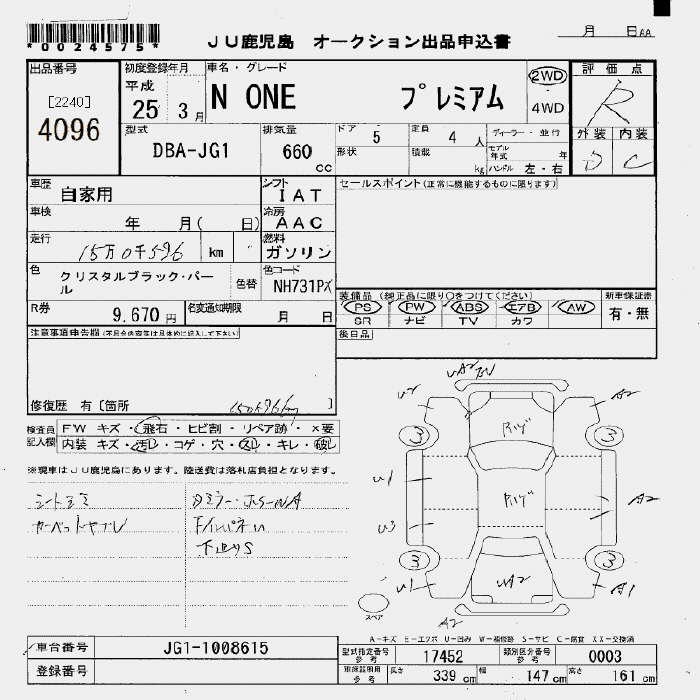 *0024575*
JU鹿児島 オークション出品申込書
月 日
出品番号
[2240]
4096
初度登録年月
平成
25 3月
車名・グレード
N ONE プレミアム
2WD
4WD
評価点
R
外装 内装
D C
型式
DBA-JG1
排気量
660
cc
ドア 5
定員 4 人
ディーラー・並行
形状
積載 kg
モデル年式 年
ハンドル 左・右
車歴
自家用
シフト
IAT
セールスポイント(正常に機能するものに限ります)
車検
年 月( 日)
冷房
AAC
走行
15万0千596 km
燃料
ガソリン
色
クリスタルブラック・パール
色替
色コード
NH731PX
装備品(純正品に限り○をつけてください)
PS PW ABS エアB AW
SR ナビ TV カワ
新車保証書
有・無
R券
9.670円
名変通知期限
月 日
注意事項申告欄(不具合内容等は具体的に記入して下さい)
後日品
修復歴 有〔箇所 〕
検査員記入欄
FW キズ・飛石・ヒビ割・リペア跡・X要
内装 キズ・汚れ・コゲ・穴・スレ・キレ・破れ
※現車はJU鹿児島にあります。陸送費は落札店負担となります。
3
3
3
3
U1
A2
U3
UA2
U1
A1
A2
スペア
A-キズ E-エクボ U-凹み W-補修跡 S-サビ C-腐食 XX-交換済
車台番号
JG1-1008615
登録番号
型式指定番号
参考
17452
類別区分番号
参考
0003
参考
長さ 339 cm
幅 147 cm
高さ 161 cm